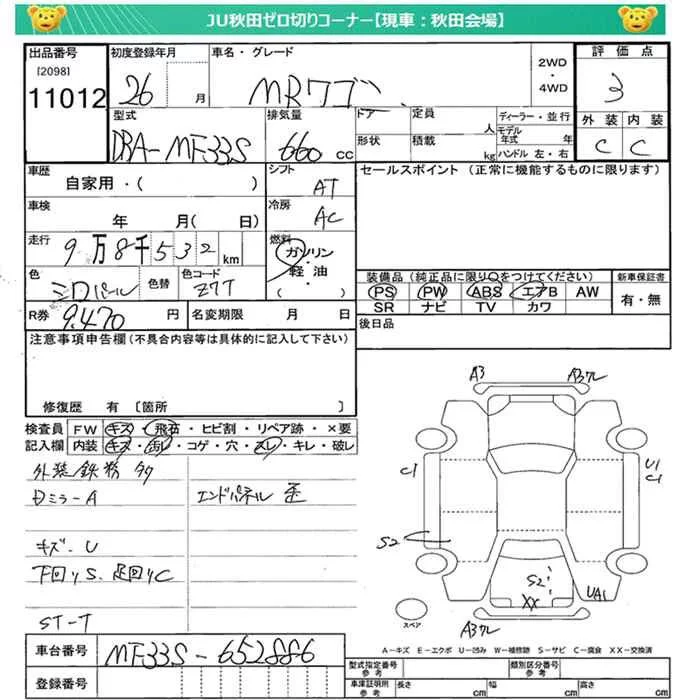 JU秋田ゼロ切りコーナー【現車：秋田会場】
出品番号 初度登録年月 車名・グレード 2WD・4WD 評価点
[2098]
11012 26 月 MRワゴン 3
型式 排気量 ドア 定員 人 ディーラー・並行 外装 内装
DBA-MF33S 660 cc 形状 積載 kg モデル年式 年 ハンドル 左・右 C C
車歴 自家用・( ) シフト AT セールスポイント (正常に機能するものに限ります)
車検 年 月( 日) 冷房 AC
走行 9万8千532km 燃料 ガソリン・軽油・( )
色 シロパール 色替 色コード Z7T 装備品(純正品に限り○をつけてください) 新車保証書
PS PW ABS エアB AW 有・無
SR ナビ TV カワ
R券 9,470 円 名変期限 月 日 後日品
注意事項申告欄(不具合内容等は具体的に記入して下さい)
修復歴 有 [箇所 ]
検査員 FW キズ・飛石・ヒビ割・リペア跡・×要
記入欄 内装 キズ・汚レ・コゲ・穴・スレ・キレ・破レ
外装鉄粉多
Dミラー A エンドパネル 歪
キズ、U
下回りS、足回りC
ST-T
A3 A3ワレ
C1 U1
C1
S2
S2
XX UA1
スペア A3ワレ
A－キズ E－エクボ U－凹み W－補修跡 S－サビ C－腐食 XX－交換済
車台番号 MF33S-652886
登録番号
型式指定番号 参考 類別区分番号 参考
車庫証明用 参考 長さ cm 幅 cm 高さ cm